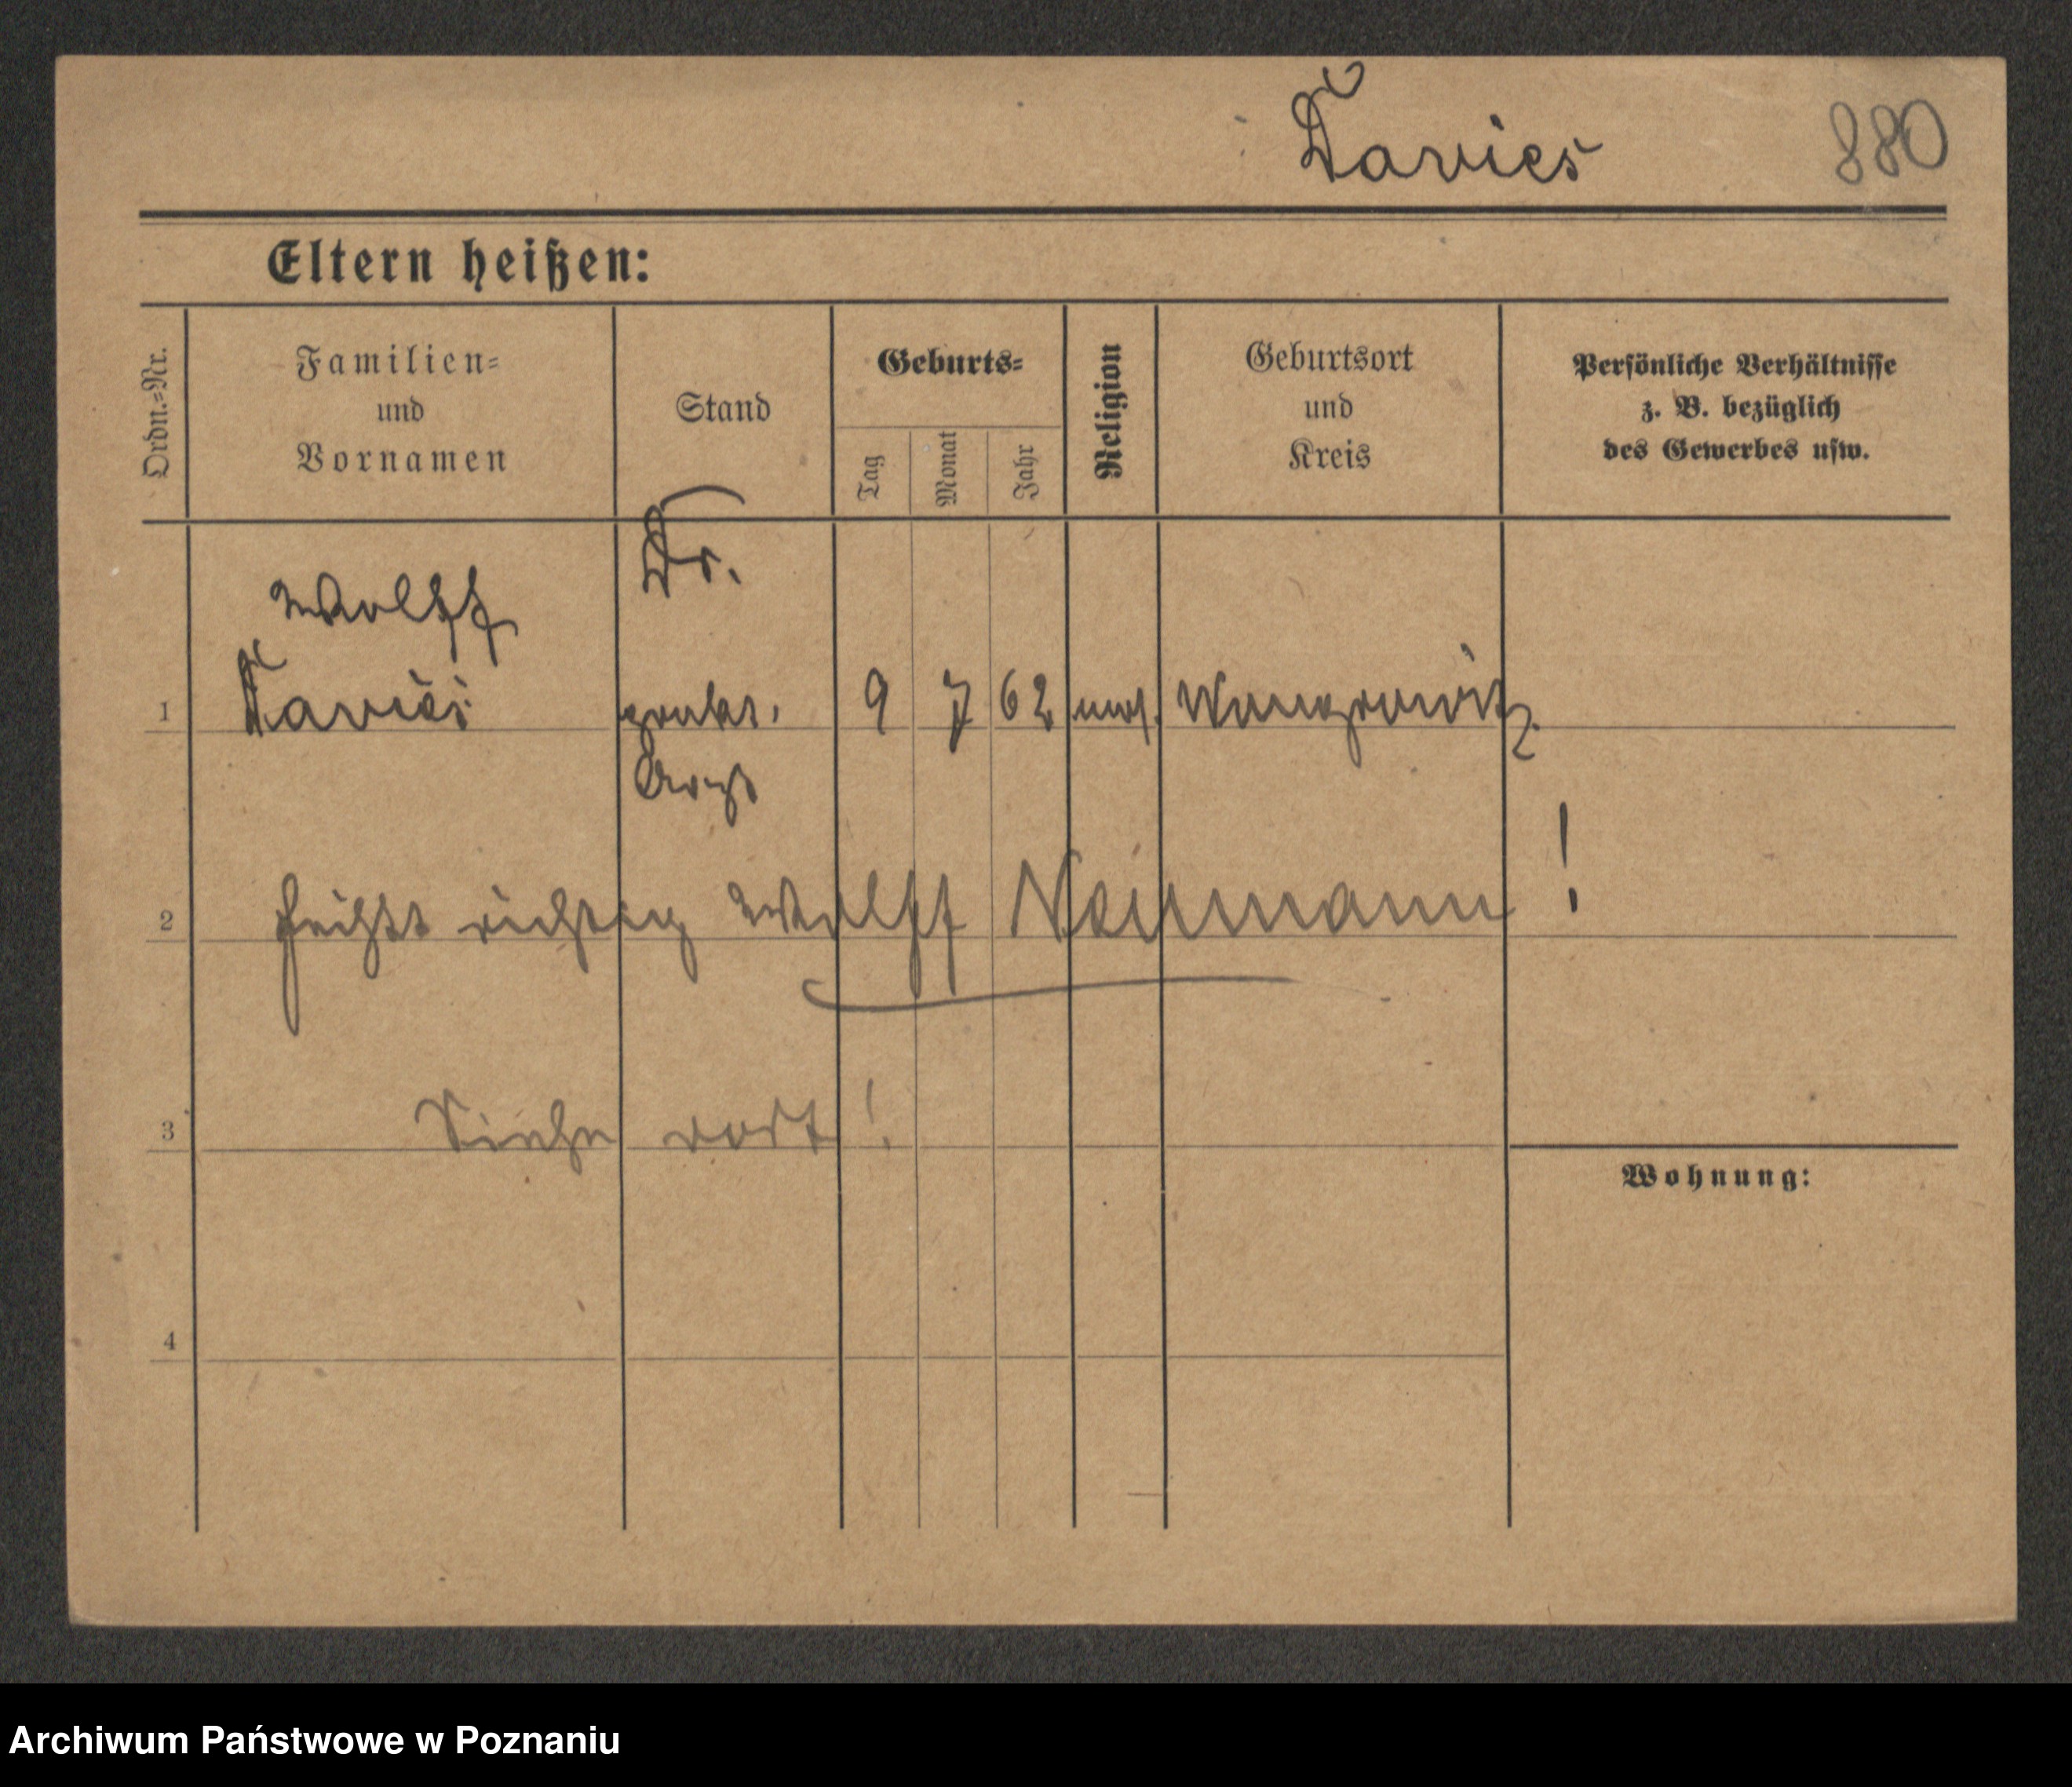 Davies 880
Eltern heißen:
Ordn.-Nr.
Familien-
und
Vornamen
Stand
Geburts-
Tag
Monat
Jahr
Religion
Geburtsort
und
Kreis
Persönliche Verhältnisse
z. B. bezüglich
des Gewerbes usw.
Dr.
Wolff
1 Davies prakt. 9 7 62 mos. Wongrowitz
Arzt
2 heißt richtig Wolff Neumann!
3 Siehe dort!
Wohnung:
4
Archiwum Państwowe w Poznaniu